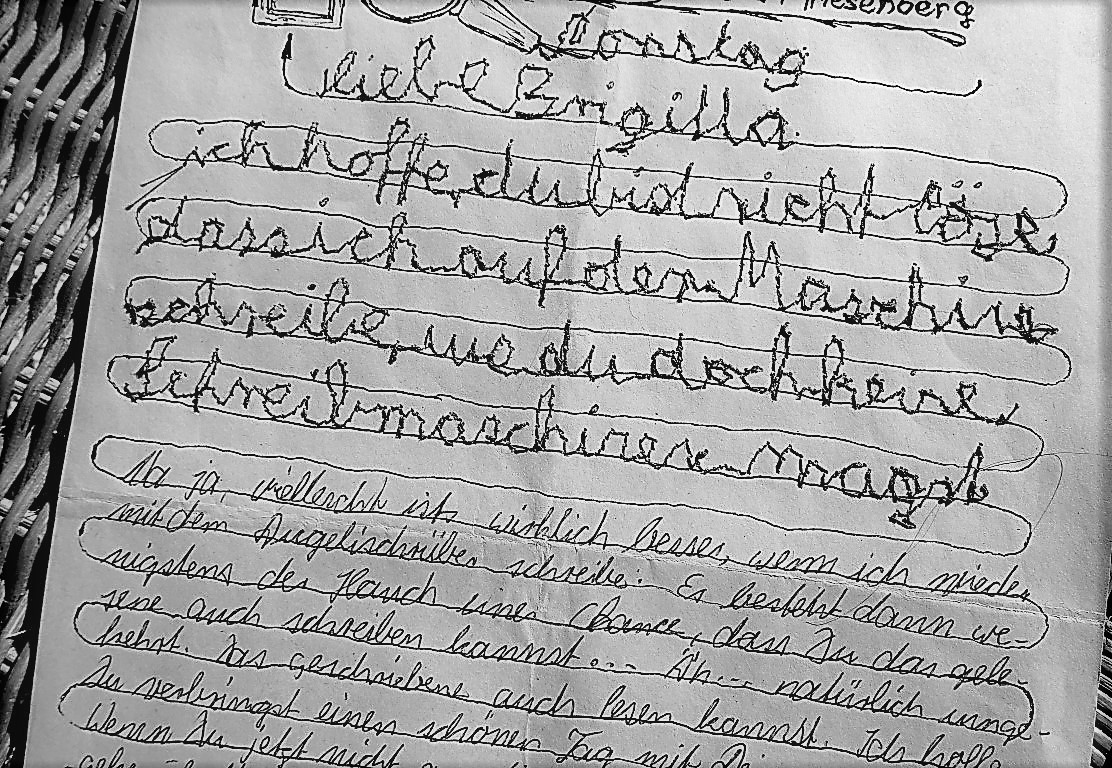 Friesenberg
Sonntag
Liebe Brigitta
ich hoffe, du bist nicht böse,
dass ich auf der Maschine
schreibe, wo du doch keine
Schreibmaschinen magst
Na ja, vielleicht ists wirklich besser, wenn ich wieder
mit dem Kugelischriiber schreibe. Es besteht dann we-
nigstens der Hauch einer Chance, dass Du das gele-
sene auch schreiben kannst... Äh... natürlich umge-
kehrt. Das geschriebene auch lesen kannst. Ich hoffe
Du verbringst einen schönen Tag mit
Wenn Du jetzt nicht